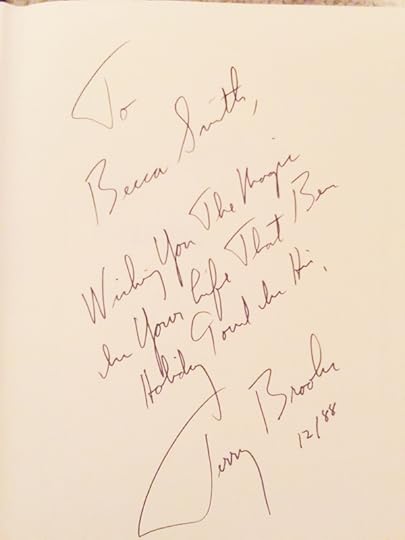 To
Becca Smith,
Wishing You The Magic
In Your Life That Ben
Holiday Found In His,
Terry Brooks
12/88